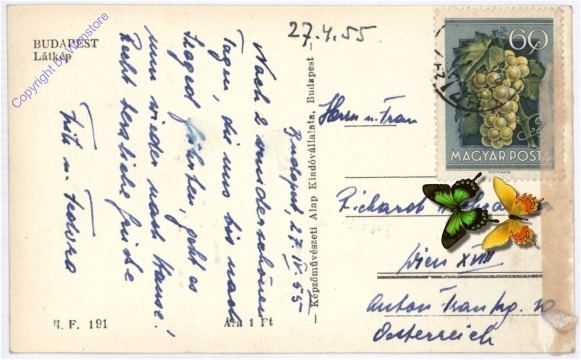 BUDAPEST
Látkép
27.4.55
Budapest, 27.IV.55
Nach 2 wunderschönen
Tagen, die uns bis nach
Szeged führten, geht es
nun wieder nach Hause!
Recht herzliche Grüße
Fritz u. Fedora
F. 191
Ára 1 Ft
Képzőművészeti Alap Kiadóvállalata, Budapest
60
MAGYAR POSTA
Herrn u. Frau
Richard
Wien XVIII
Anton
Österreich
Copyright by